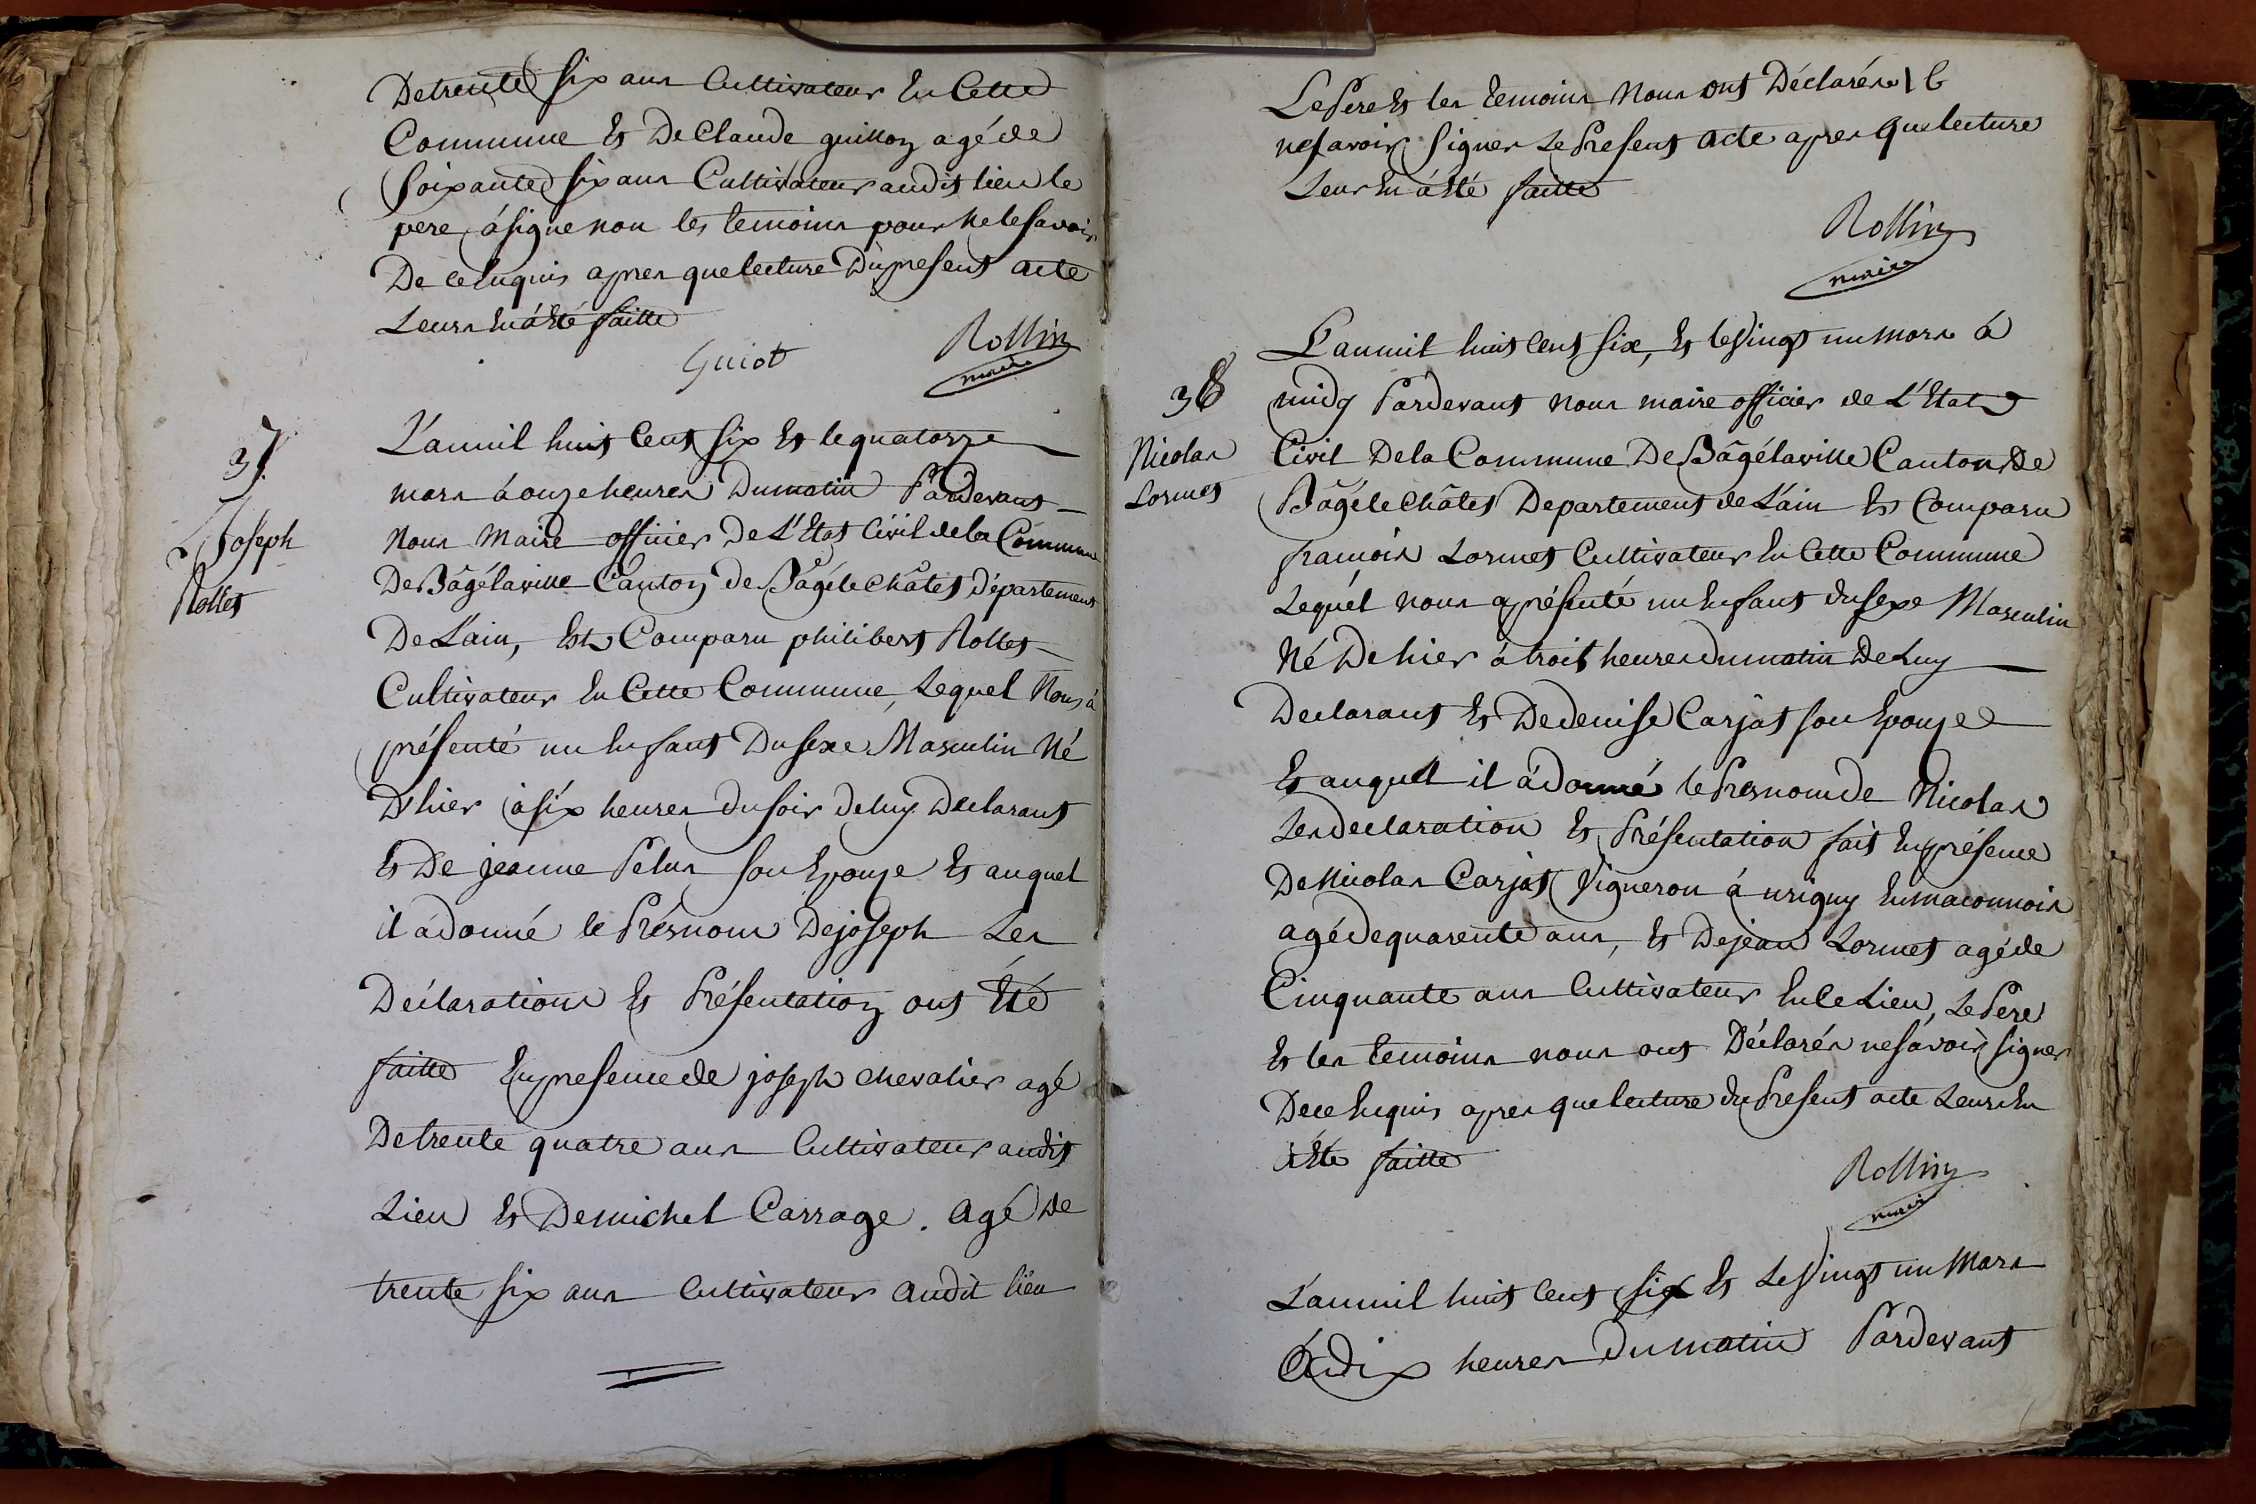 De trente six ans Cultivateur En Cette
Commune Et De Claude guillon agé de
Soixante six ans Cultivateur audit lieu le
pere á signe non les temoins pour ne le savoir
De ce Enquis apres que lecture Du present acte
Leurs En á Eté faitte
Guiot Rollin
maire
37.
Joseph
Rollet
L'an mil huit Cent six Et le quatorze
mars à onze heures Du matin Pardevant
Nous Maire officier De L'Etat Civil de la Commune
De Bâgé la ville Canton de Bâgé le Châtel Département
De L'ain, Est Comparu philibert Rollet
Cultivateur En Cette Commune, Lequel Nous à
présenté un Enfant Du sexe Masculin Né
D'hier à six heures du soir de luy Déclarant
Et De jeanne Pelus son Epouze Et auquel
il à donné le Présnom De joseph Les
Déclarations Et Présentation ont Eté
faitte En presence de joseph chevalier agé
De trente quatre ans Cultivateur audit
Lieu Et De michel Carrage . agé de
trente six ans Cultivateur audit lieu
Le Pere Et les temoins Nous ont Déclarés
ne savoir signer Le Present acte apres que lecture
Leur En á Eté faitte
Rollin
maire
38
Nicolas
Lormet
L'an mil huit Cent six, Et le Vingt un mars à
midy Pardevant nous maire officier de L'Etat
Civil De la Commune De Bâgé la ville Canton De
Bâgé le Châtel Departement de L'ain Est Comparu
francois Lormet Cultivateur En Cette Commune
Lequel nous a présenté un Enfant du sexe Masculin
Né De hier à trois heures du matin De Luy
Declarant Et De denise Carjat son Epouze
Et auquel il à donné le Presnom de Nicolas
Les declaration Et Présentation fait En présence
De Nicolas Carjat Vigneron à urigny En maconnois
agé de quarente ans, Et De jean Lormet agé de
Cinquante ans Cultivateur En Ce Lieu, Le Pere
Et les temoins nous ont Déclarés ne sávoir signer
De ce Enquis apres que lecture du Present acte Leurs En
á Eté faitte
Rollin
maire
L'an mil huit Cent six Et Le Vingt un Mars
à dix heures Du matin Pardevant